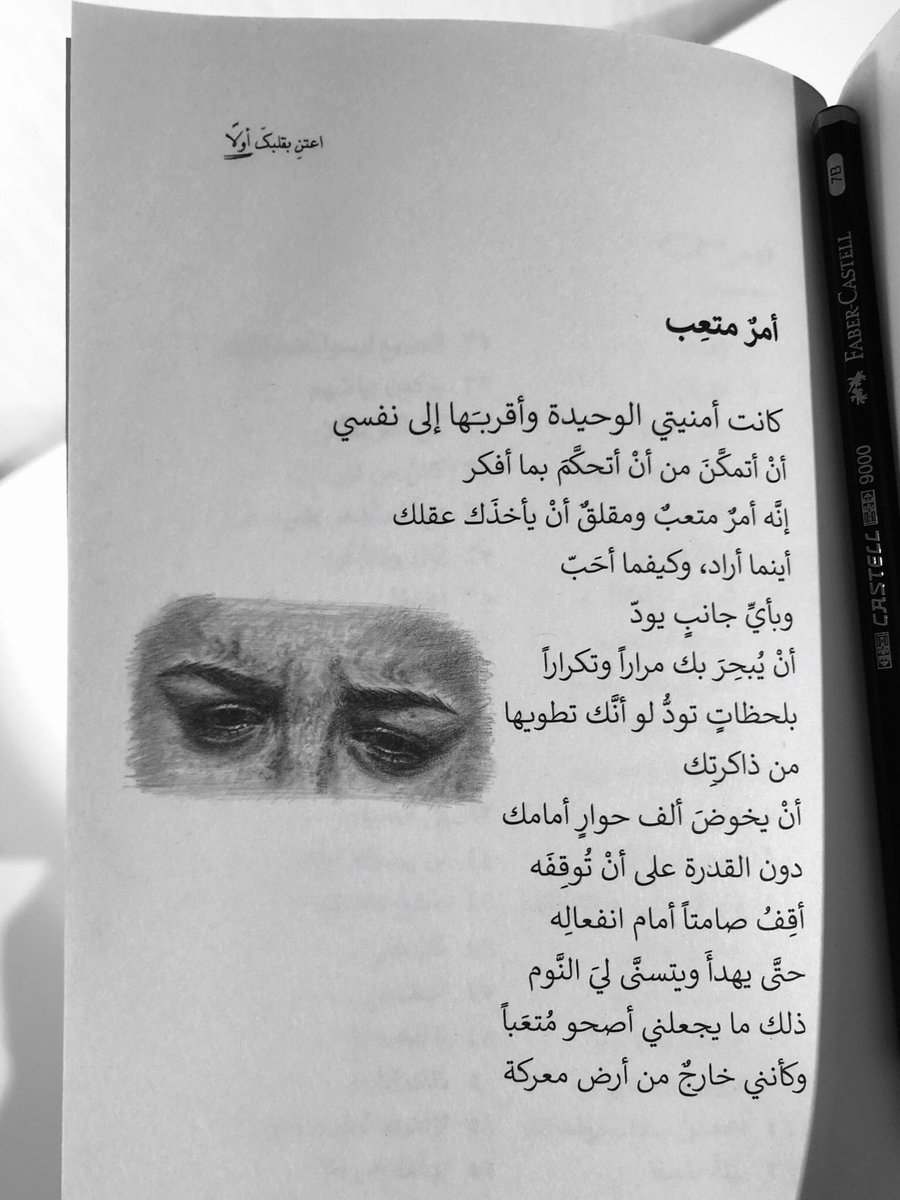 اعتنِ بقلبكَ أولًا
أمرٌ متعِب
كانت أمنيتي الوحيدة وأقربـَها إلى نفسي
أنْ أتمكَّنَ من أنْ أتحكَّمَ بما أفكر
إنَّه أمرٌ متعبٌ ومقلقٌ أنْ يأخذَك عقلك
أينما أراد، وكيفما أحَبّ
وبأيِّ جانبٍ يودّ
أنْ يُبحِرَ بك مراراً وتكراراً
بلحظاتٍ تودُّ لو أنَّك تطويها
من ذاكرتِك
أنْ يخوضَ ألف حوارٍ أمامك
دون القدرة على أنْ تُوقِفَه
أقِفُ صامتاً أمام انفعالِه
حتَّى يهدأَ ويتسنَّى ليَ النَّوم
ذلك ما يجعلني أصحو مُتعَباً
وكأنني خارجٌ من أرض معركة
CASTELL 9000 FABER-CASTELL 7B